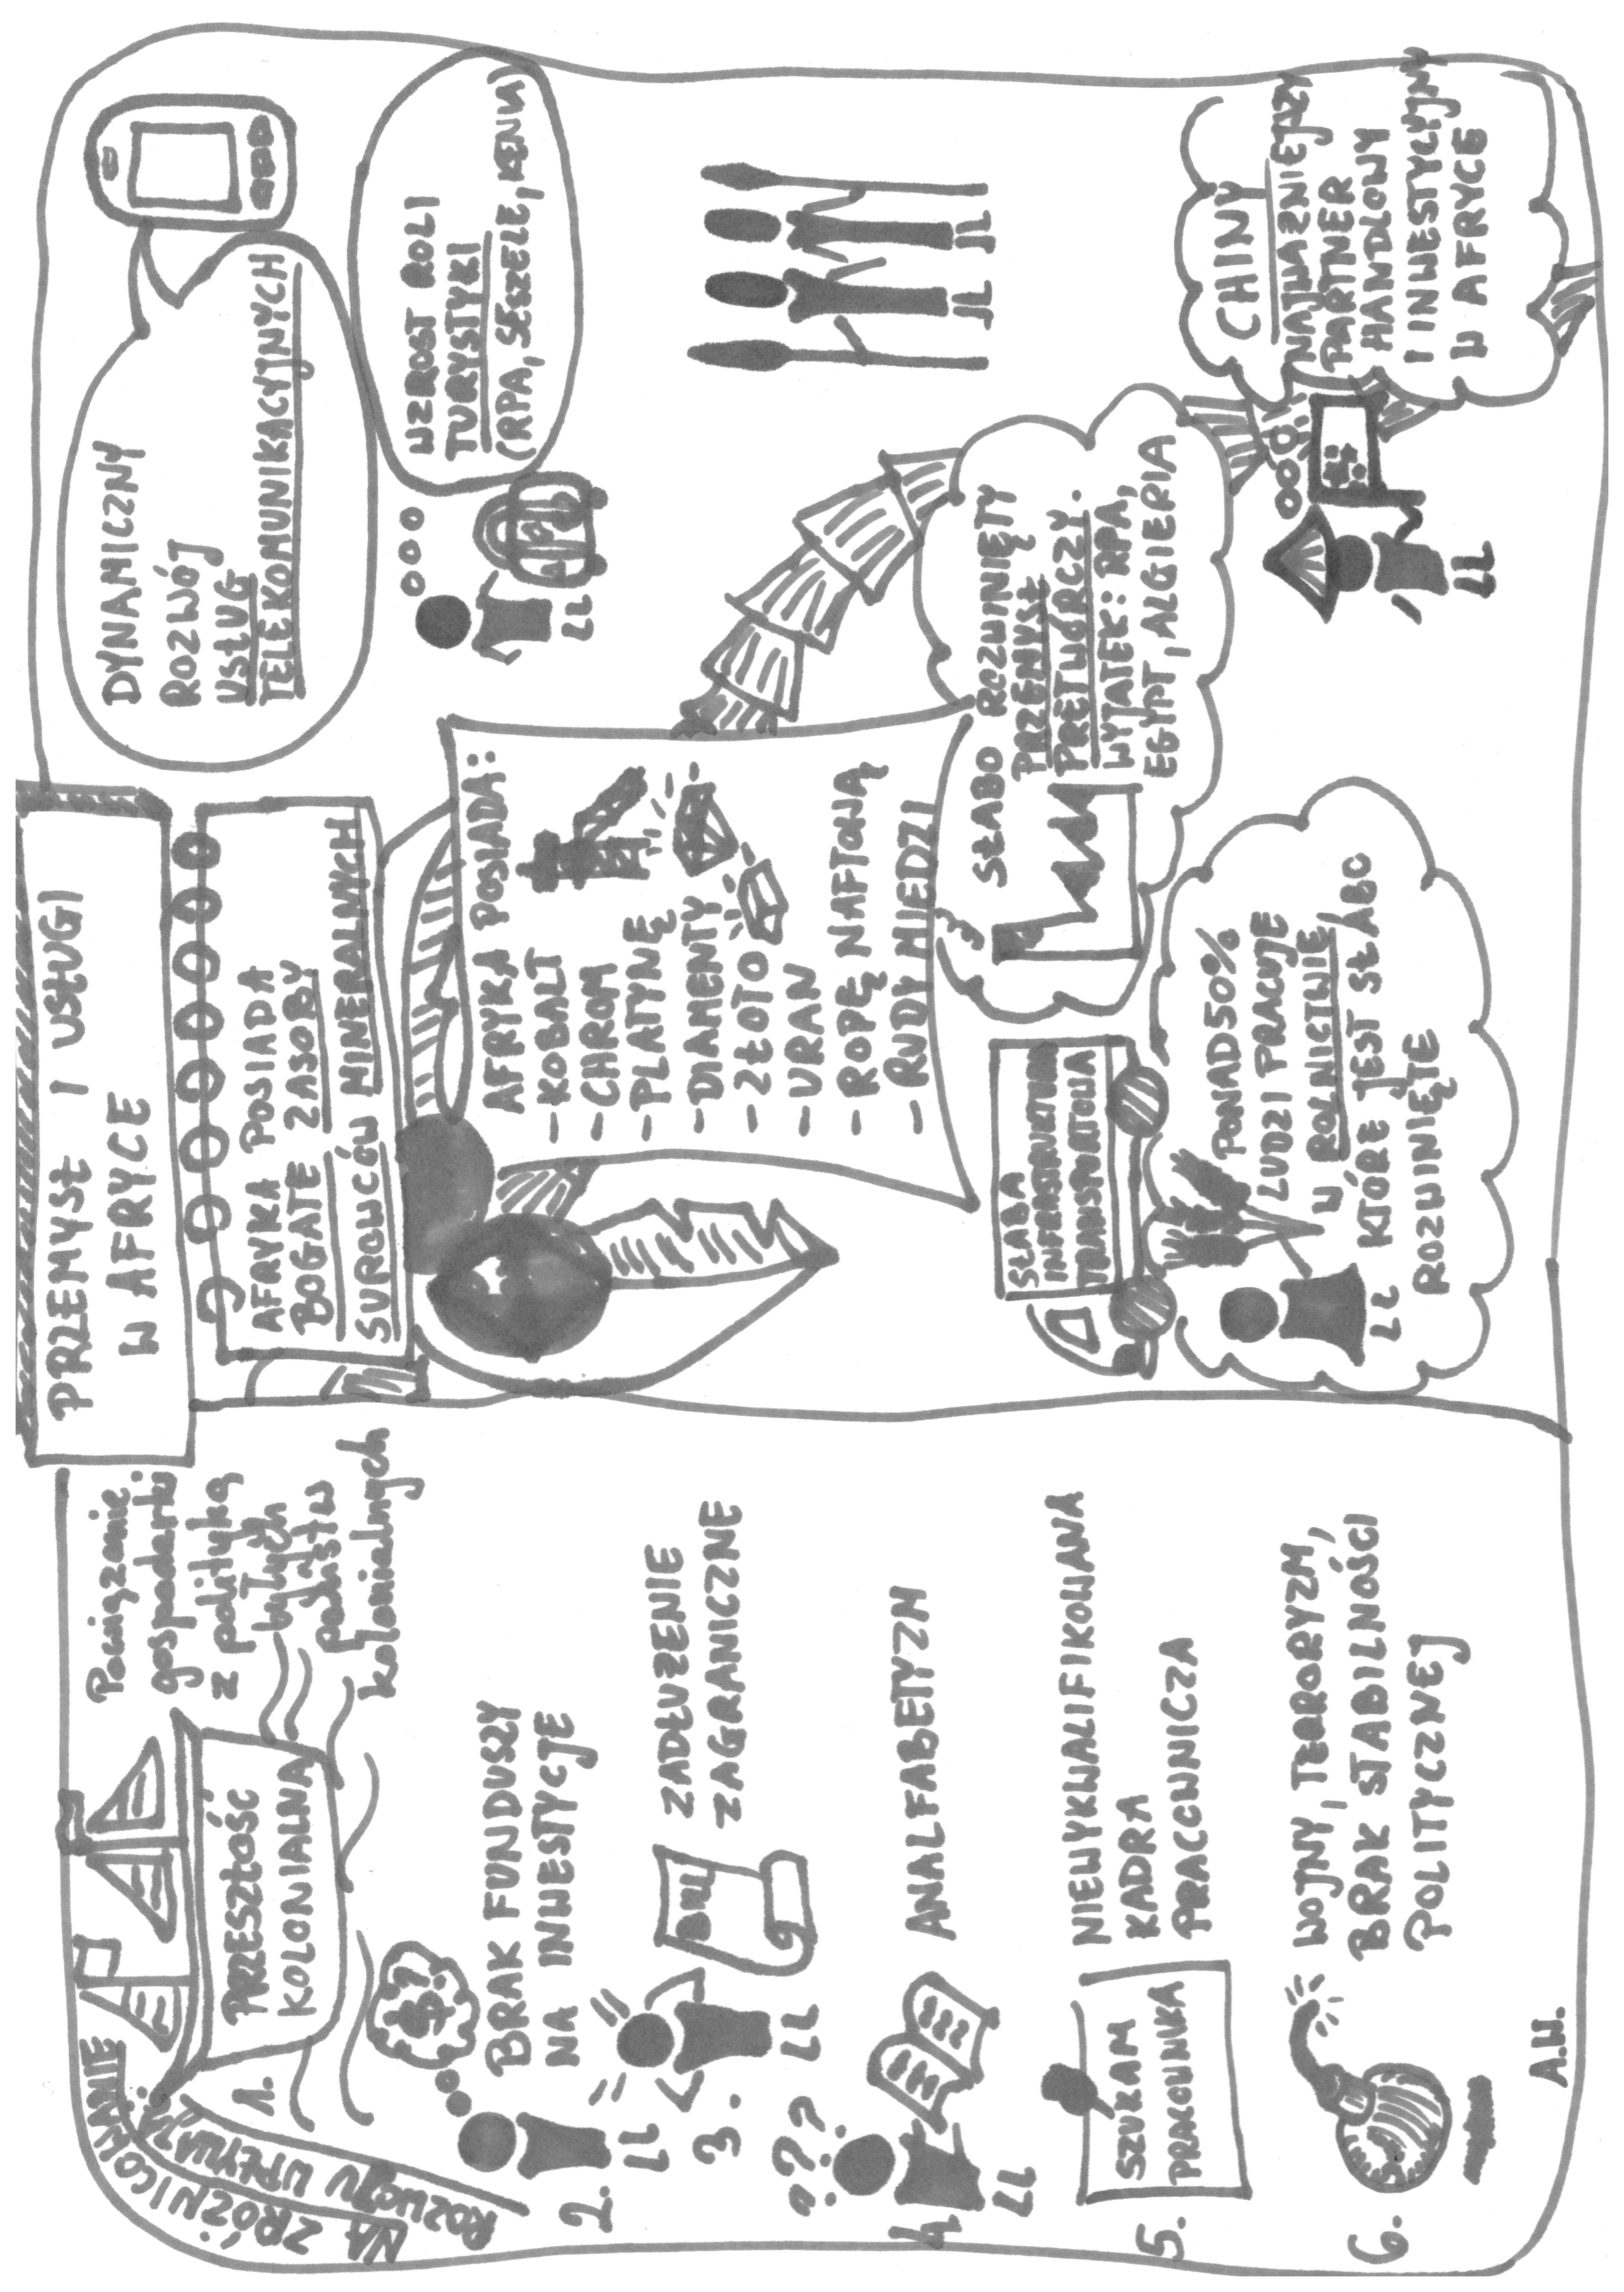 PRZEMYSŁ I USŁUGI
W AFRYCE
NA ZRÓŻNICOWANIE
ROZWOJU WPŁYWAJĄ:
1.
PRZESZŁOŚĆ
KOLONIALNA
Powiązanie
gospodarki
z polityką
byłych
państw
kolonialnych
2.
$?
BRAK FUNDUSZY
NA INWESTYCJE
3.
BILL
ZADŁUŻENIE
ZAGRANICZNE
4.
???
ANALFABETYZM
5.
SZUKAM
PRACOWNIKA
NIEWYKWALIFIKOWANA
KADRA
PRACOWNICZA
6.
WOJNY, TERRORYZM,
BRAK STABILNOŚCI
POLITYCZNEJ
A.W.
AFRYKA POSIADA
BOGATE ZASOBY
SUROWCÓW MINERALNYCH
AFRYKA POSIADA:
- KOBALT
- CHROM
- PLATYNĘ
- DIAMENTY
- ZŁOTO
- URAN
- ROPĘ NAFTOWĄ
- RUDY MIEDZI
SŁABA
INFRASTRUKTURA
TRANSPORTOWA
PONAD 50%
LUDZI PRACUJE
W ROLNICTWIE,
KTÓRE JEST SŁABO
ROZWINIĘTE
SŁABO ROZWINIĘTY
PRZEMYSŁ
PRETWÓRCZY.
WYJĄTEK: RPA,
EGIPT, ALGIERIA
DYNAMICZNY
ROZWÓJ
USŁUG
TELEKOMUNIKACYJNYCH
WZROST ROLI
TURYSTYKI
(RPA, SESZELE, KENIA)
CHINY
NAJWAŻNIEJSZY
PARTNER
HANDLOWY
I INWESTYCYJNY
W AFRYCE